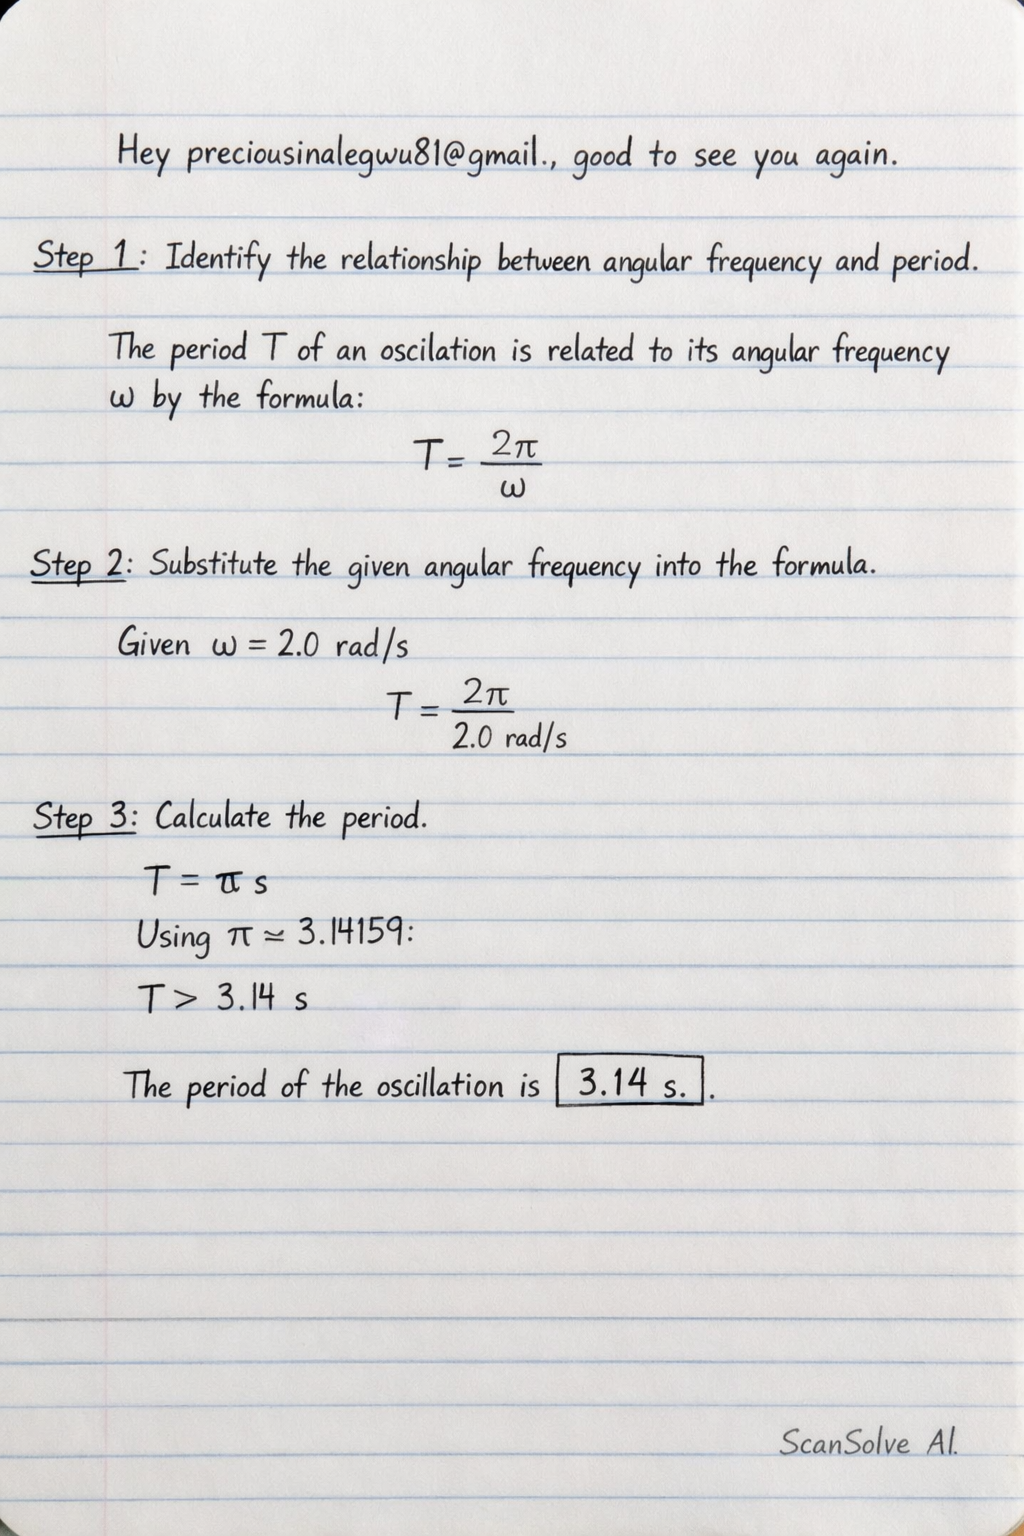 Hey preciousinalegwu81@gmail., good to see you again.
Step 1: Identify the relationship between angular frequency and period.
The period T of an oscilation is related to its angular frequency
ω by the formula:
T = 2π / ω
Step 2: Substitute the given angular frequency into the formula.
Given ω = 2.0 rad/s
T = 2π / 2.0 rad/s
Step 3: Calculate the period.
T = π s
Using π ≃ 3.14159:
T > 3.14 s
The period of the oscillation is 3.14 s. .
ScanSolve AI.